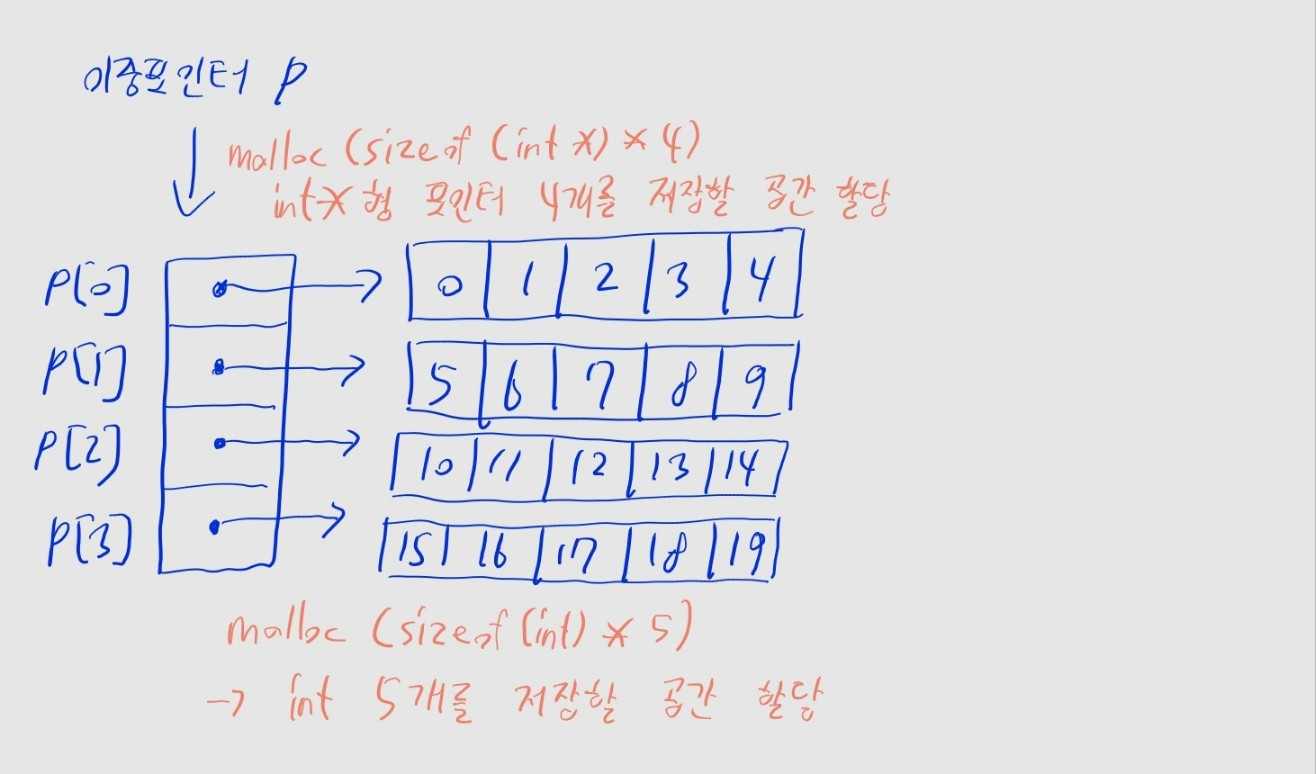 이중포인터 p
malloc (sizeof (int *) * 4)
int* 형 포인터 4개를 저장할 공간 할당
p[0] 0 1 2 3 4
p[1] 5 6 7 8 9
p[2] 10 11 12 13 14
p[3] 15 16 17 18 19
malloc (sizeof (int) * 5)
→ int 5개를 저장할 공간 할당